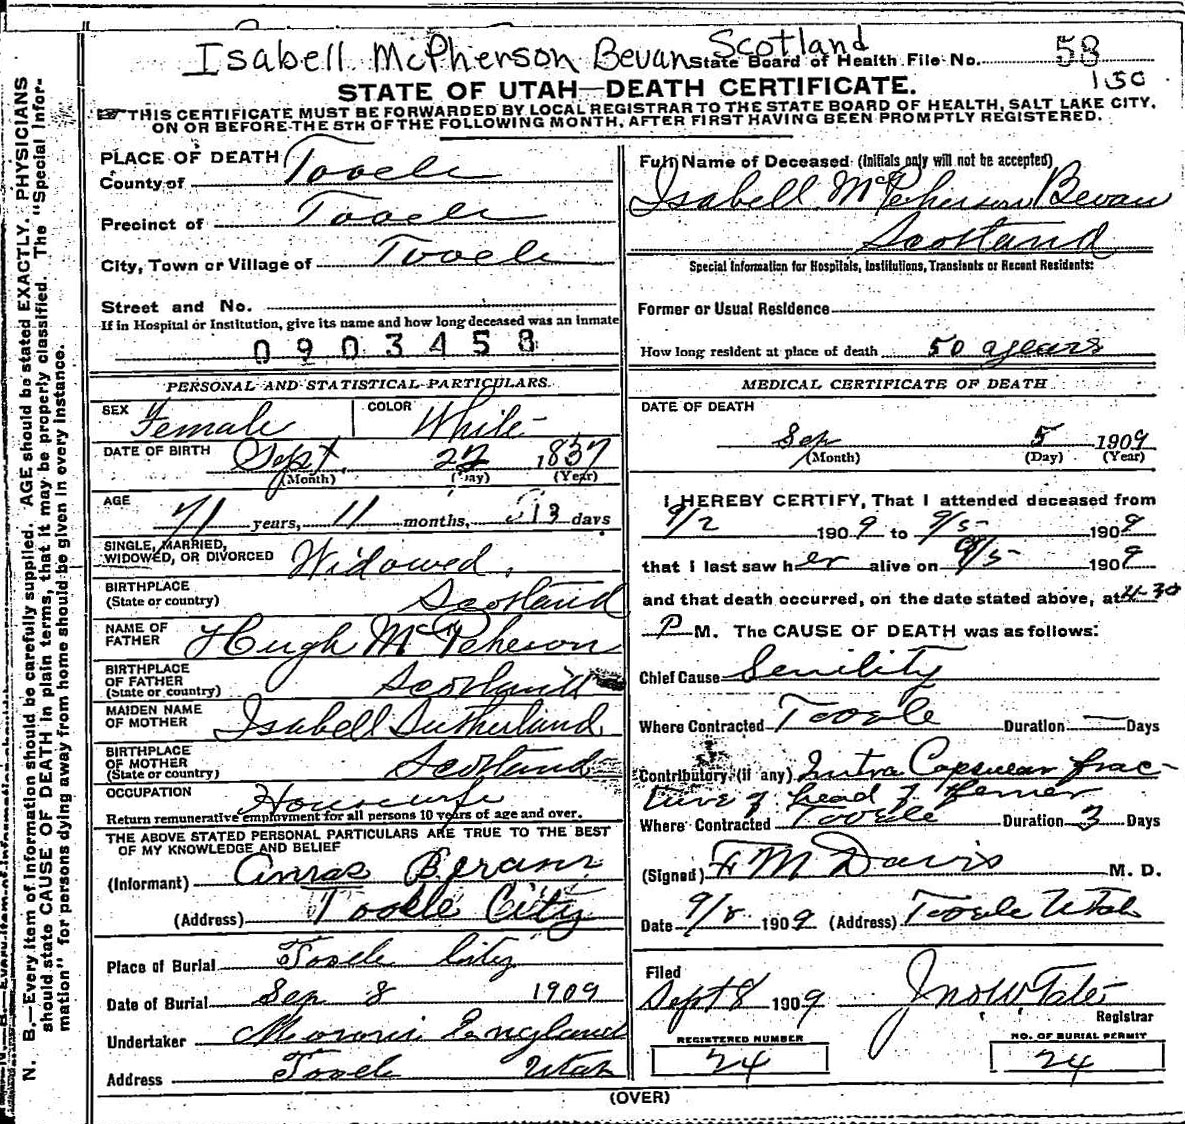 Isabell McPherson Bevan Scotland State Board of Health File No. 58
130
STATE OF UTAH—DEATH CERTIFICATE.
THIS CERTIFICATE MUST BE FORWARDED BY LOCAL REGISTRAR TO THE STATE BOARD OF HEALTH, SALT LAKE CITY,
ON OR BEFORE THE 5TH OF THE FOLLOWING MONTH, AFTER FIRST HAVING BEEN PROMPTLY REGISTERED.
PLACE OF DEATH
County of Tooele
Precinct of Tooele
City, Town or Village of Tooele
Street and No.
If in Hospital or Institution, give its name and how long deceased was an inmate
0903458
PERSONAL AND STATISTICAL PARTICULARS.
SEX Female COLOR White
DATE OF BIRTH Sept. 22 1837
(Month) (Day) (Year)
AGE
71 years, 11 months, 13 days
SINGLE, MARRIED,
WIDOWED, OR DIVORCED Widowed.
BIRTHPLACE
(State or country) Scotland
NAME OF
FATHER Hugh McPeherson
BIRTHPLACE
OF FATHER
(State or country) Scotland
MAIDEN NAME
OF MOTHER Isabell Sutherland
BIRTHPLACE
OF MOTHER
(State or country) Scotland
OCCUPATION Housewife
Return remunerative employment for all persons 10 years of age and over.
THE ABOVE STATED PERSONAL PARTICULARS ARE TRUE TO THE BEST
OF MY KNOWLEDGE AND BELIEF
(Informant) Bevan
(Address) Tooele City
Place of Burial Tooele City
Date of Burial Sep 8 1909
Undertaker England
Address Tooele Utah
Full Name of Deceased (Initials only will not be accepted)
Isabell McPeherson Bevan
Scotland
Special Information for Hospitals, Institutions, Transients or Recent Residents:
Former or Usual Residence
How long resident at place of death 50 years
MEDICAL CERTIFICATE OF DEATH
DATE OF DEATH
Sep 5 1909
(Month) (Day) (Year)
I HEREBY CERTIFY, That I attended deceased from
9/2 1909 to 9/5 1909
that I last saw her alive on 9/5 1909
and that death occurred, on the date stated above, at 4-30
P M. The CAUSE OF DEATH was as follows:
Chief Cause Senility
Where Contracted Tooele Duration — Days
Contributory (if any) Intra Capsular frac-
ture of head of femer
Where Contracted Tooele Duration 3 Days
(Signed) F M Davis M. D.
Date 9/8 1909 (Address) Tooele Utah
Filed
Sept 8 1909 Jno W Tate
Registrar
REGISTERED NUMBER NO. OF BURIAL PERMIT
24 24
(OVER)
N. B.—Every item of Information should be carefully supplied. AGE should be stated EXACTLY. PHYSICIANS
should state CAUSE OF DEATH in plain terms, that it may be properly classified. The "Special Infor-
mation" for persons dying away from home should be given in every instance.